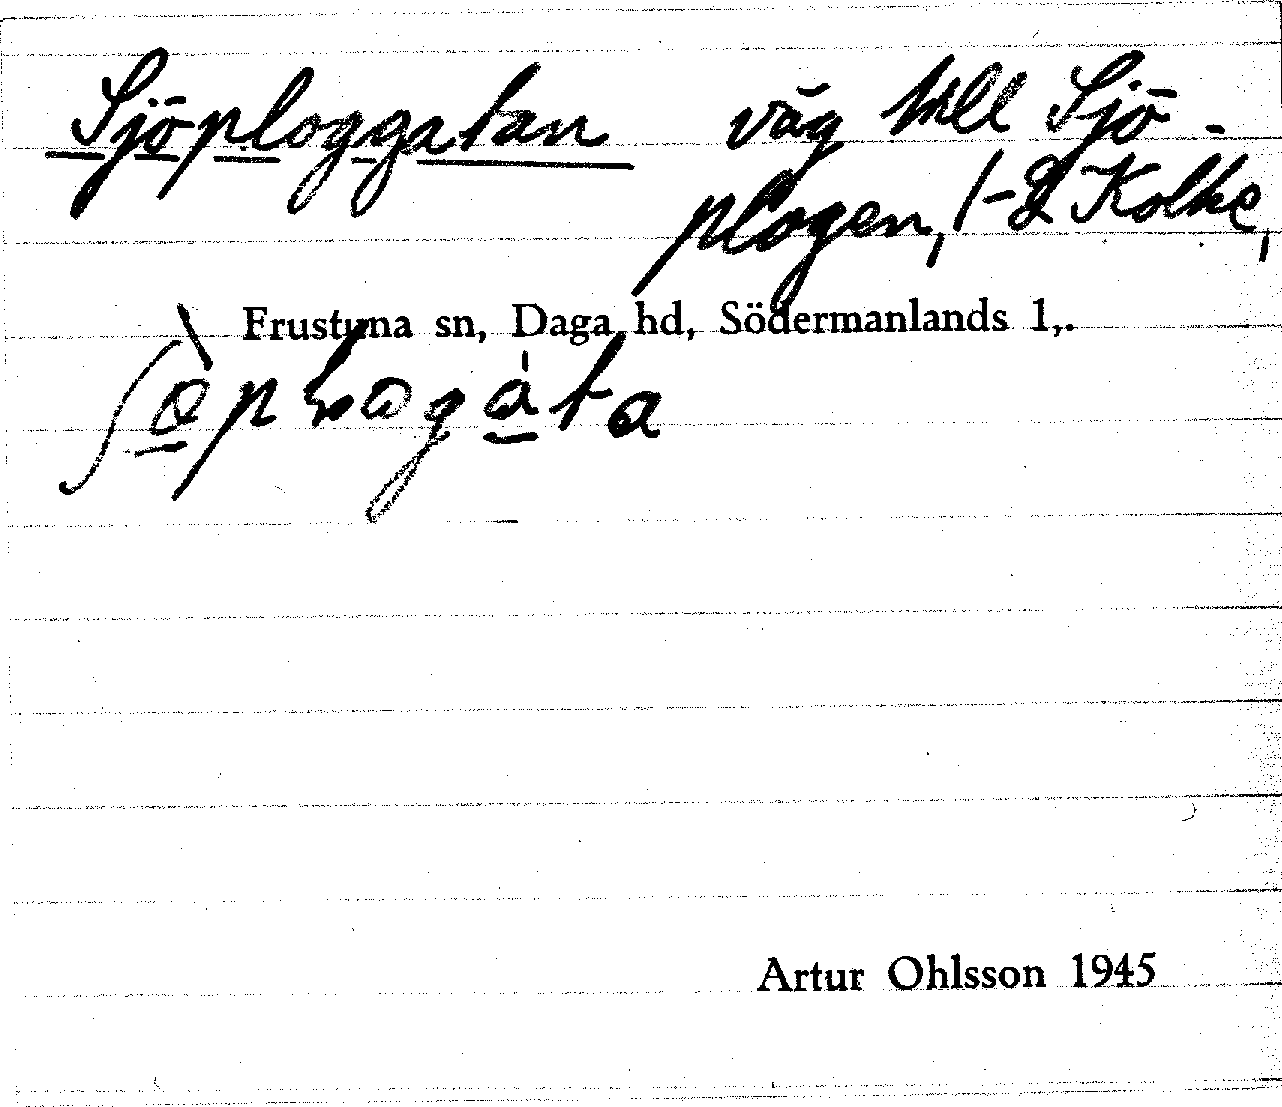 Sjöploggatan väg till Sjö-
plogen, Kolke,
Frustuna sn, Daga hd, Södermanlands l,.
Artur Ohlsson 1945